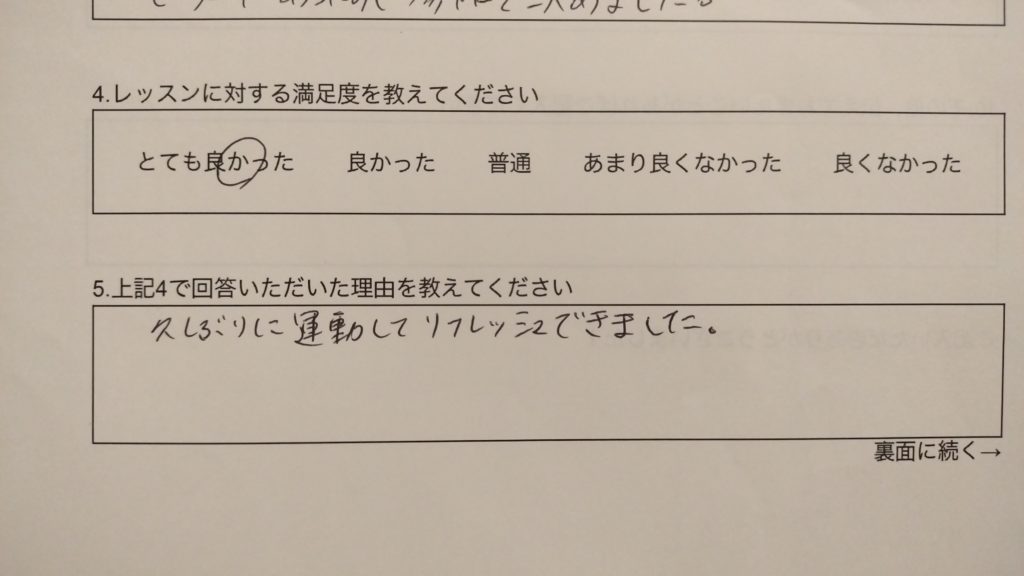 4.レッスンに対する満足度を教えてください
とても良かった 良かった 普通 あまり良くなかった 良くなかった
5.上記4で回答いただいた理由を教えてください
久しぶりに運動してリフレッシュできました。
裏面に続く→